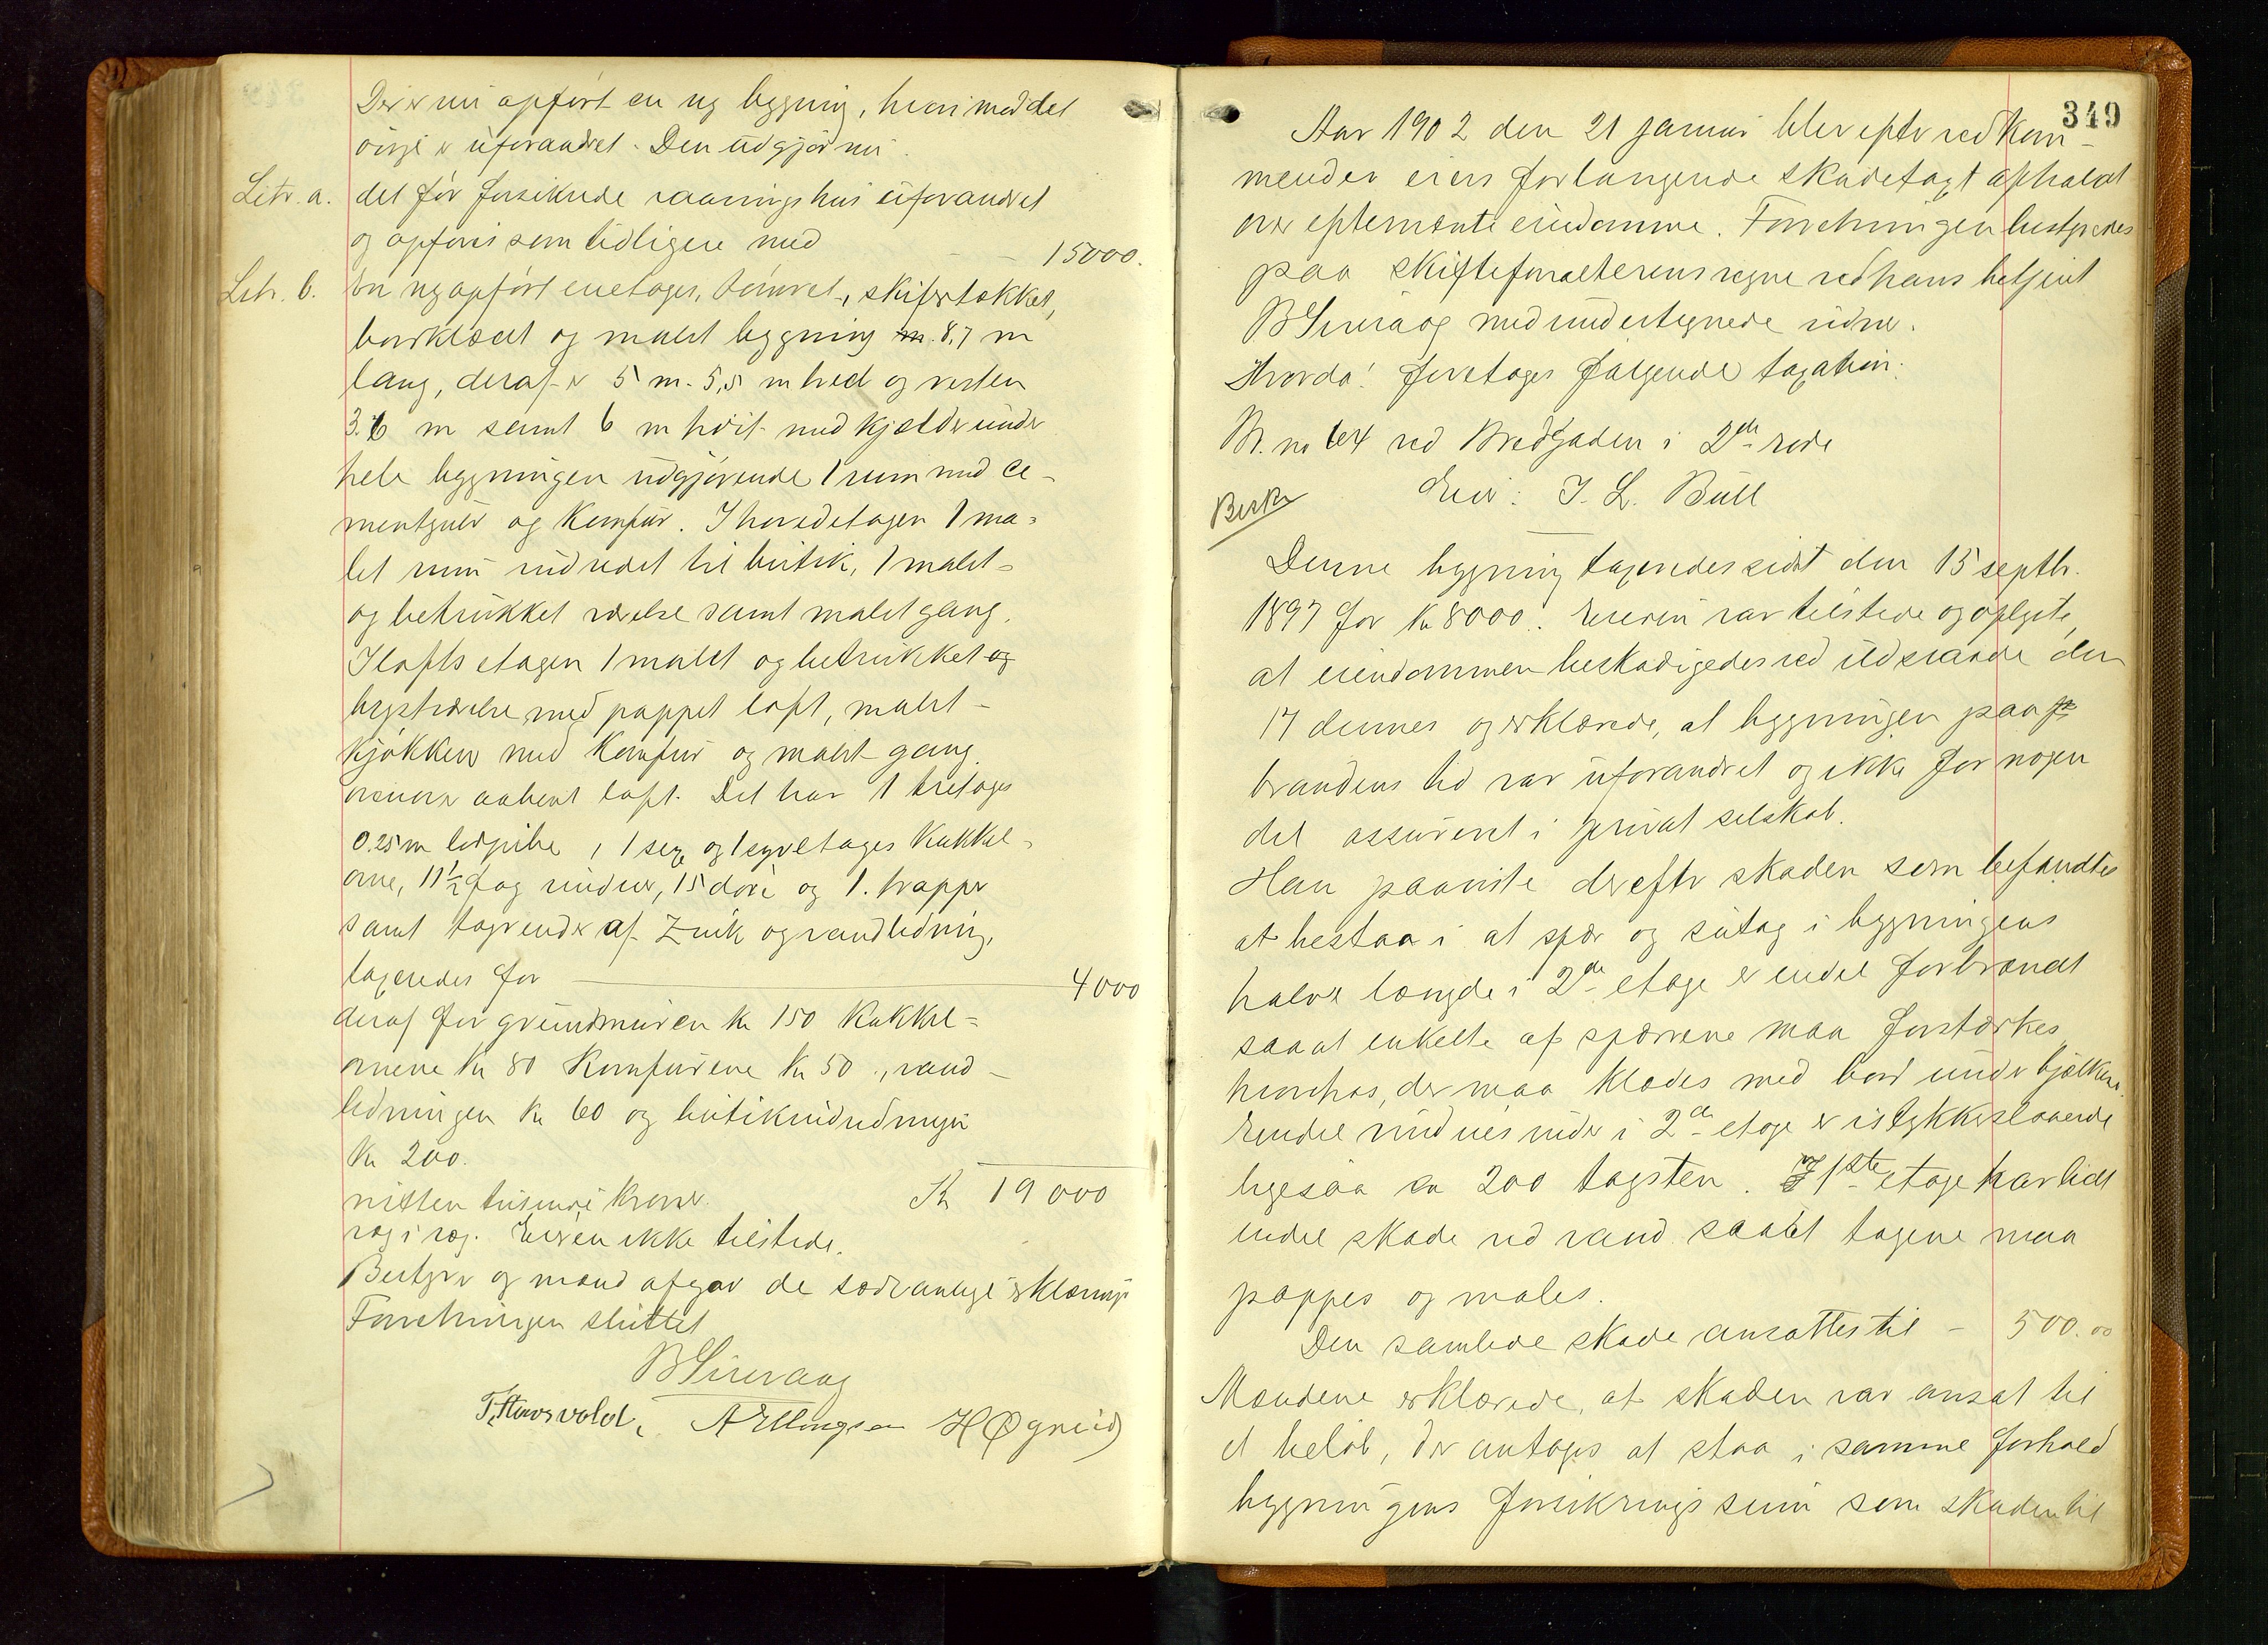 Der er nu opført en ny bygning, hvorimod det
øvrige er uforandret. Den udgjør nu
Litr. a. det før forsikrede vaaningshus uforandret
og opføres som tidligere med — — 15000.
Litr. b. En nyopført enetages, tømret, skifertækket,
bordklædt og malet bygning 8,7 m
lang, deraf er 5 m. 5,5 m bred og resten
3.6 m samt 6 m høit med kjælder under
hele bygningen udgjørende 1 rum med ce-
mentgulv og komfur. I hovedetagen 1 ma-
let rum indredet til butik, 1 malet
og betrukket værelse samt malet gang.
I loftsetagen 1 malet og betrukket og
brystværelse med pappet loft, malet
kjøkken med komfur og malet gang
ovenover aabent loft. Det har 1 tretages
0.25 m borpibe, 1 sex og 1 syvetages kakkel-
ovne, 11 1/2 fag vinduer, 15 døre og 1. trapper
samt tagrender af zink og vandledning,
taxeredes for — 4000
deraf for grundmuren kr 150 kakkel-
ovnene kr 80 komfurene kr 50., vand-
ledningen kr 60 og butikindredningen
kr 200.
nitten tusinde kroner. Kr 19000
væg i væg. Eieren ikke tilstede.
Bestyrer og mænd afgav de sædvanlige erklæringer
Forretningen sluttet
B Sirevaag
T. Hausvold, A Ellingsen H Øgreid
349
Aar 1902 den 21 januar blev efter vedkom-
mender eiers forlangende skadetaxt afholdt
over eftermænte eiendomme. Forretningen bestyredes
paa skifteforvalterens vegne ved hans betjent
B Sirevaag med undertegnede vidner.
Hvorda! foretoges følgende taxation:
Br. no 64 ved Bredgaden i 2den rode
Eier: J. L. Bull
Denne bygning taxeredes sidst den 15 septbr.
1897 for kr 8000. Eieren var tilstede og oplyste,
at eiendommen beskadigedes ved ildsvaade den
17 dennes og erklærede, at bygningen paa
brandens tid var uforandret og ikke for nogen
del assureret i privat selskab.
Han paaviste derefter skaden som befandtes
at bestaa i at spær og sutag i bygningens
halve længde i 2den etage er endel forbrændt
saa at enkelte af spærrene maa forstærkes
hvorhos, der maa klædes med bord under bjelkene.
Endel vinduesruder i 2den etage er istykkerslaaede
ligesaa ca 200 tagsten. I 1ste etage har lidt
endel skade ved vand saa at tagene maa
pappes og males.
Den samlede skade ansattes til — 500.00
Mændene erklærede, at skaden var ansat til
et beløb, der antages at staa i samme forhold
bygningens forsikringssum som skaden til